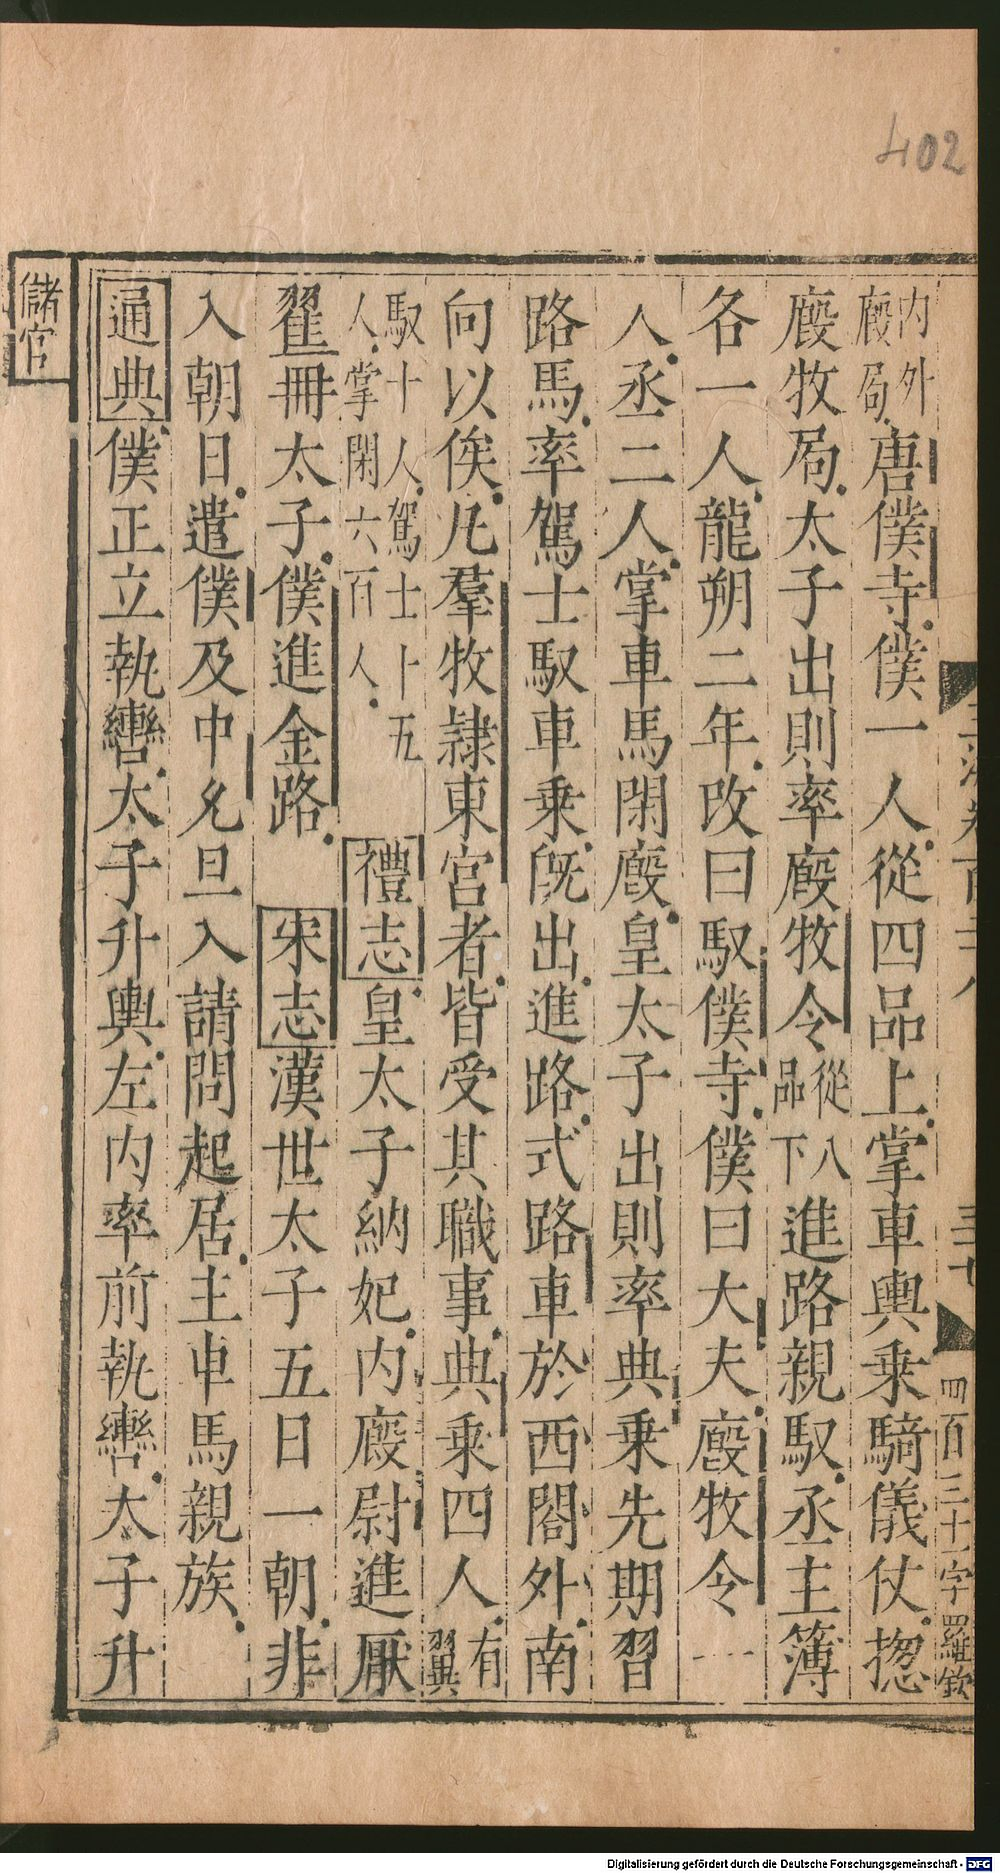 402
内外廄局唐僕寺僕一人從四品上掌車輿乗騎儀仗揔
廄牧局太子出則率廄牧令從八品下進路親馭丞主簿
各一人龍朔二年改曰馭僕寺僕曰大夫廄牧令一
人丞二人掌車馬閑廄皇太子出則率典乗先期習
路馬率駕士馭車乗旣出進路式路車於西閤外南
向以俟凡羣牧隷東宮者皆受其職事典乗四人有翼
馭十人駕士十五人掌閑六百人禮志皇太子納妃内廄尉進厭
翟冊太子僕進金路 宋志漢世太子五日一朝非
入朝日遣僕及中允旦入請問起居主車馬親族
通典僕正立執轡太子升輿左内率前執轡太子升
儲官
四百三十字羅欽
Digitalisierung gefördert durch die Deutsche Forschungsgemeinschaft - DFG